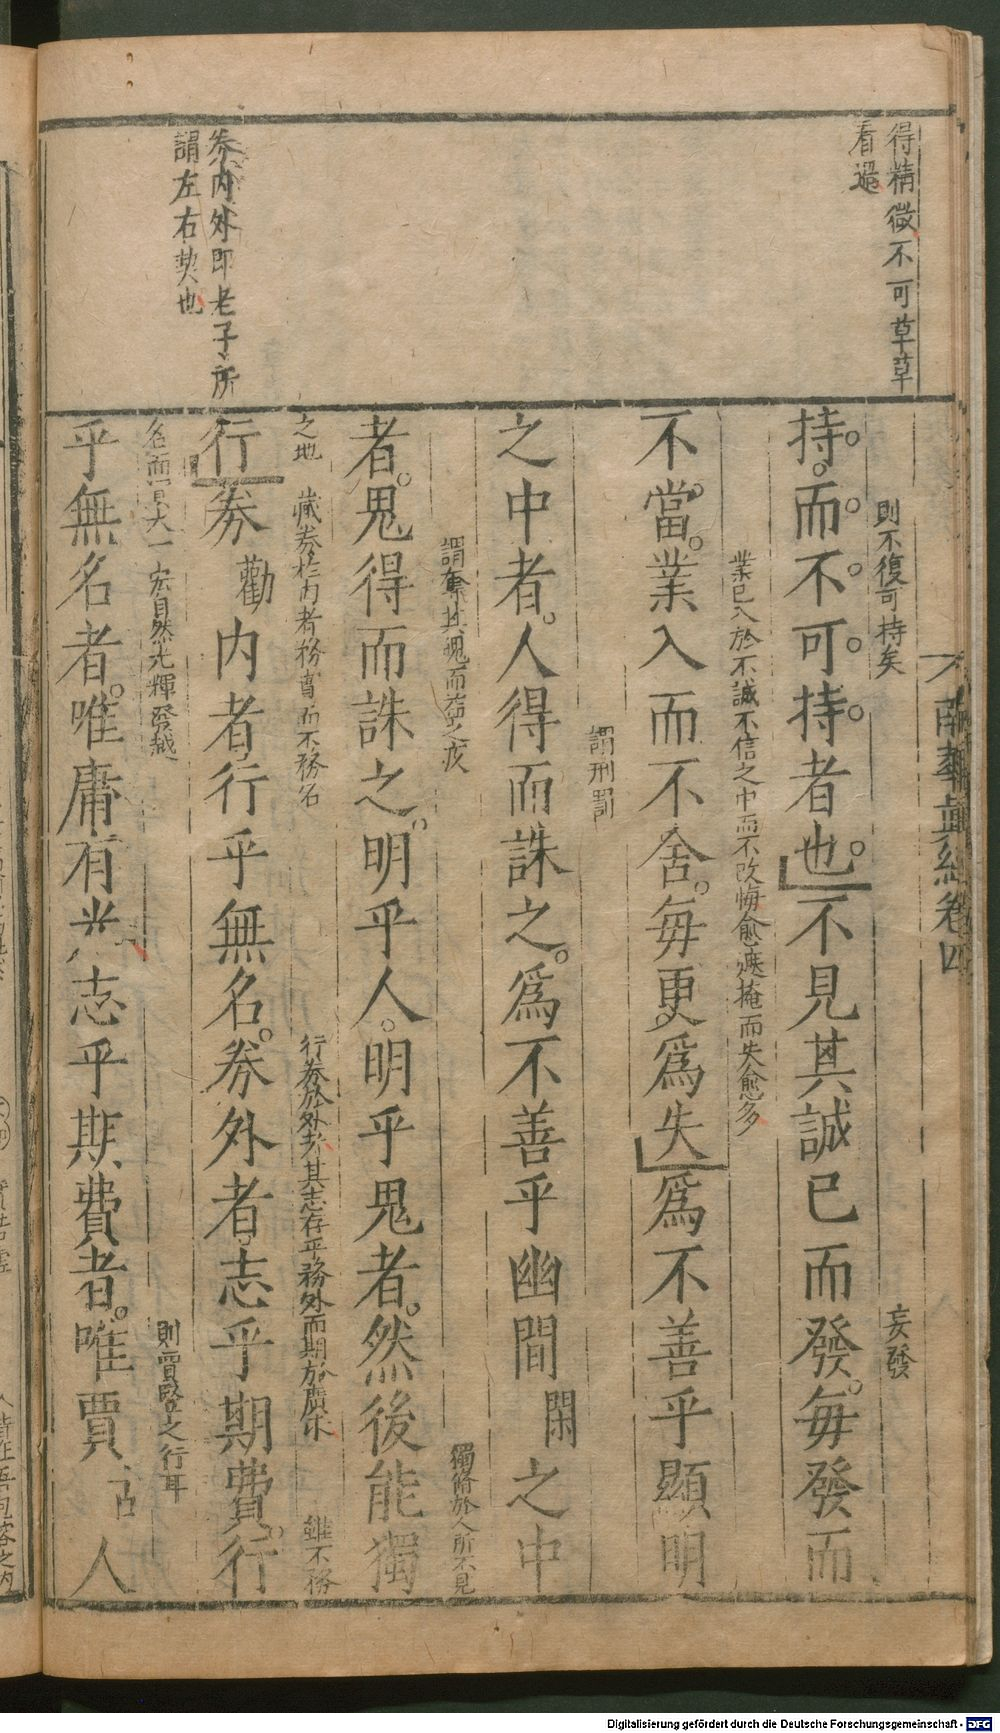 南華真經卷四
得精微不可草草
看過
則不復可持矣
妄發
持而不可持者也不見其誠已而發每發而
業已入於不誠不信之中而不改悔愈遮掩而失愈多
不當業入而不舍每更爲失爲不善乎顯明
謂刑罰
之中者人得而誅之爲不善乎幽間閑之中
謂奪其魄而益之疢
獨脩於人所不見
者鬼得而誅之明乎人明乎鬼者然後能獨
之地
藏券於內者務實而不務名
行券於外者其志存乎務外而期於廣
雖不務
券內外即老子所
謂左右契也
行券勸內者行乎無名券外者志乎期費行
名而
自然光輝發越
則賈豎之行耳
乎無名者唯庸有光志乎期費者唯賈古人
Digitalisierung gefördert durch die Deutsche Forschungsgemeinschaft - DFG